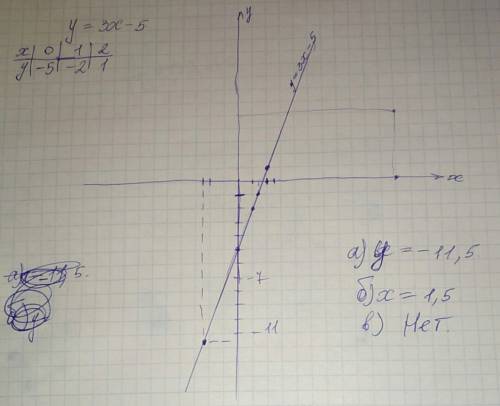 y = 3x - 5
x | 0 | 1 | 2
y | -5 | -2 | 1
y
y = 3x - 5
x
-7
-11
а) y = -11,5
б) x = 1,5
в) Нет.